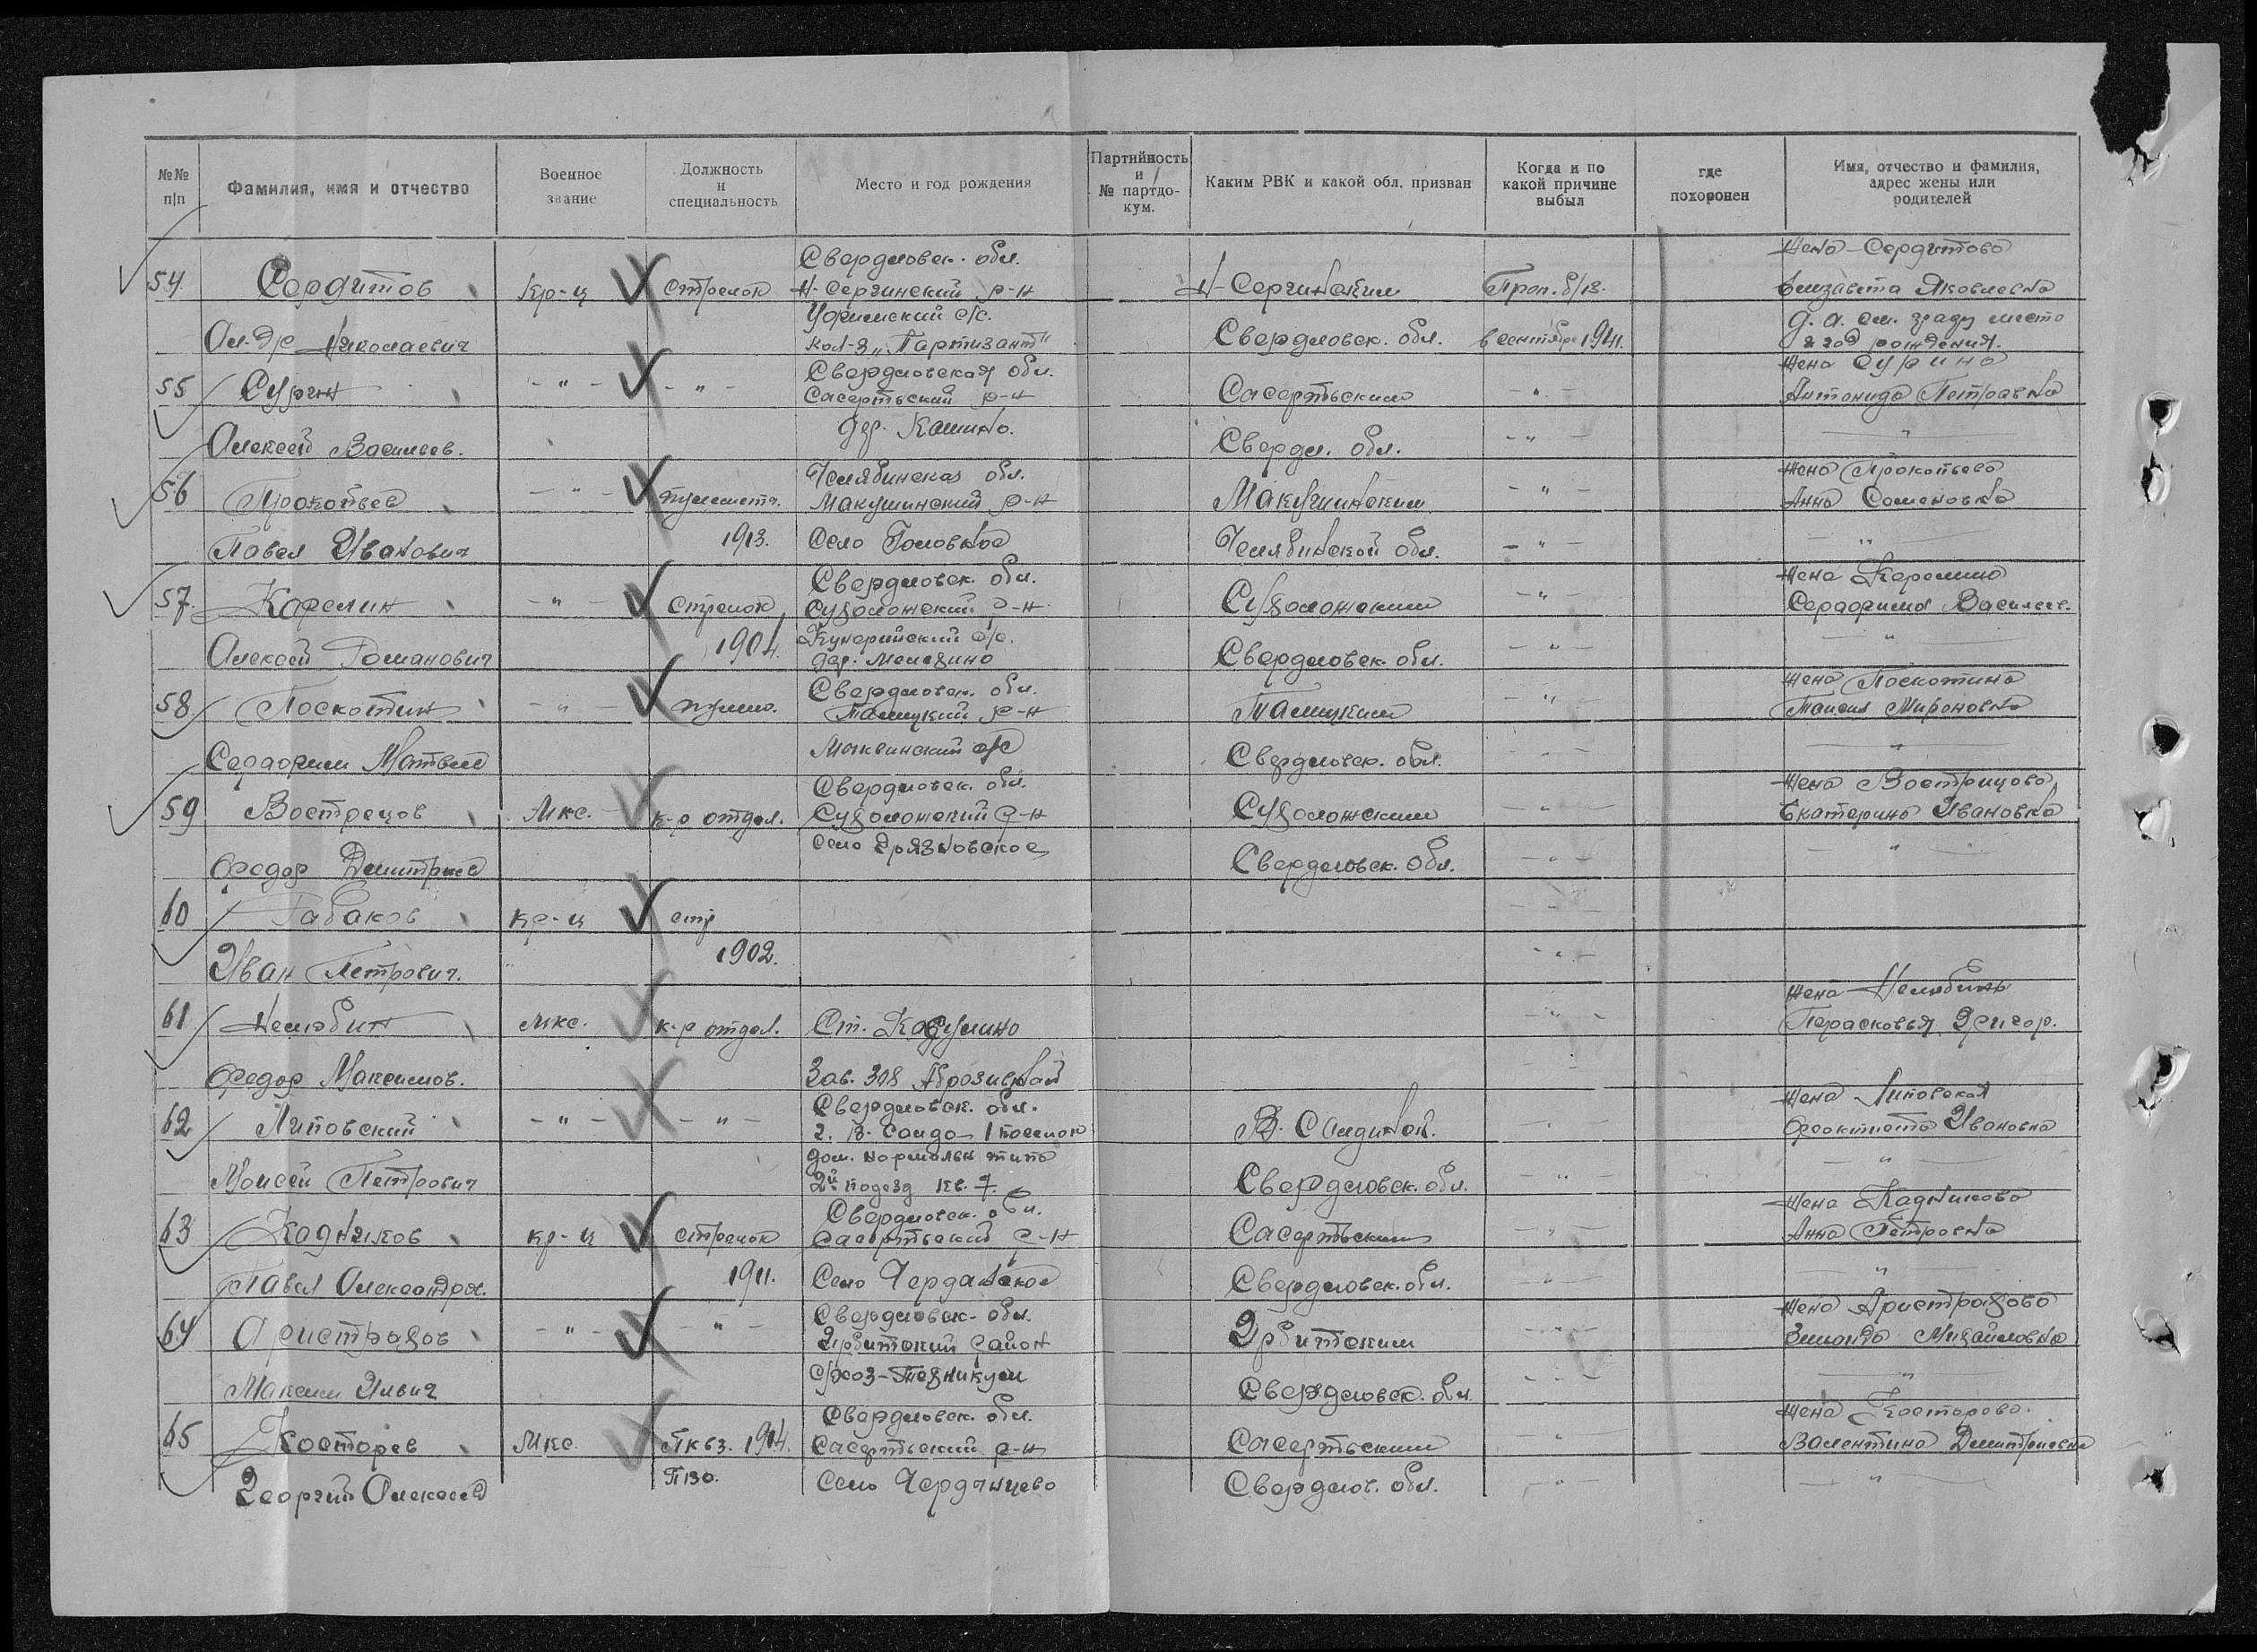 №№ п|п
Фамилия, имя и отчество
Военное звание
Должность и специальность
Место и год рождения
Партийность и № партдокум.
Каким РВК и какой обл. призван
Когда и по какой причине выбыл
где похоронен
Имя, отчество и фамилия, адрес жены или родителей
Свердловск. обл. Жена Сердитова
54. Сердитов кр-ц стрелок Н-Сергинский р-н Н-Сергинским Проп. б/в. Елизавета Яковлевна
с/с. д. а. см. графу место
Ал-др Николаевич кол-з „Партизант" Свердловск. обл. в сентябре 1941. и год рождения.
Свердловская обл. Жена Сурина
55 Сурин -"- -"- Сасертьский р-н Сасертьским -"- Антонида Петровна
дер. Кашино.
Алексей Васильев. Свердл. обл. -"- -"-
Челябинская обл. Жена Прокопьева
56 Прокопьев -"- пулеметч. Макушинский р-н Макушинским -"- Анна Семеновна
Павел Иванович 1913. Село Головное Челябинской обл. -"- -"-
Свердловск. обл. Жена Карелина
57. Карелин -"- стрелок Сухоложский р-н Сухоложским -"- Серафима Васильев.
с/с.
Алексей Романович 1904. дер. Мелехино Свердловск. обл. -"- -"-
Свердловск. обл. Жена Поскотина
58. Поскотин -"- пулем. Талицкий р-н Талицким -"- Таисия Мироновна
Серафим Матвеев с/с Свердловск. обл. -"- -"-
Свердловск. обл. Жена Вострицова
59 Вострецов Мкс. к-р отдел. Сухоложский р-н Сухоложским -"- Екатерина Ивановна
село Грязновское
Федор Дмитриев Свердловск. обл. -"- -"-
60 Табаков кр-ц стр -"-
Иван Петрович. 1902. -"-
Жена Нелюбина
61 Нелюбин мкс. к-р отдел. Ст. -"- Парасковья Григор.
Федор Максимов. Зав. 308
Свердловск. обл. Жена Липовская
62 Липовский -"- -"- г. В. Салда 1 поселок В. Салдинск. Феоктиста Ивановна
дом. нормальн типа
Моисей Петрович 2й подезд кв. 7. Свердловск. обл. -"- -"-
Свердловск. обл. Жена Кадникова
63 Кадников кр-ц стрелок Сасертьский р-н Сасертьским -"- Анна Петровна
Павел Александров. 1911. Село Черданское Свердловск. обл. -"- -"-
Свердловск. обл. Жена Аристрахова
64 Аристрахов -"- -"- Ирбитский район Ирбитским -"- Михайловна
Максим Ильич с/хоз-Техникум Свердловск. обл. -"- -"-
Свердловск. обл. Жена Косторева.
65 Косторев Мкс. 1914. Сасертьский р-н Сасертьским -"- Валентина Дмитриевна
Георгий Алексеев Село Черданцево Свердлов. обл. -"- -"-